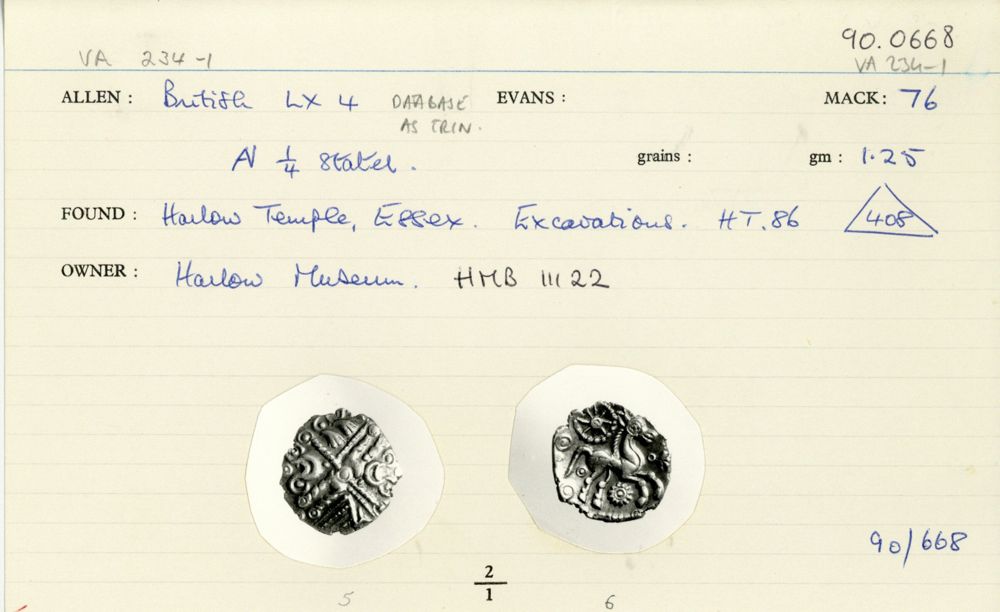 90.0668
VA 234-1 VA 234-1
ALLEN : British LX 4 DATABASE EVANS : MACK: 76
AS TRIN.
N 1/4 stater. grains : gm : 1.25
FOUND : Harlow Temple, Essex. Excavations. HT.86 408
OWNER : Harlow Museum. HMB III 22
90/668
2
1
5 6